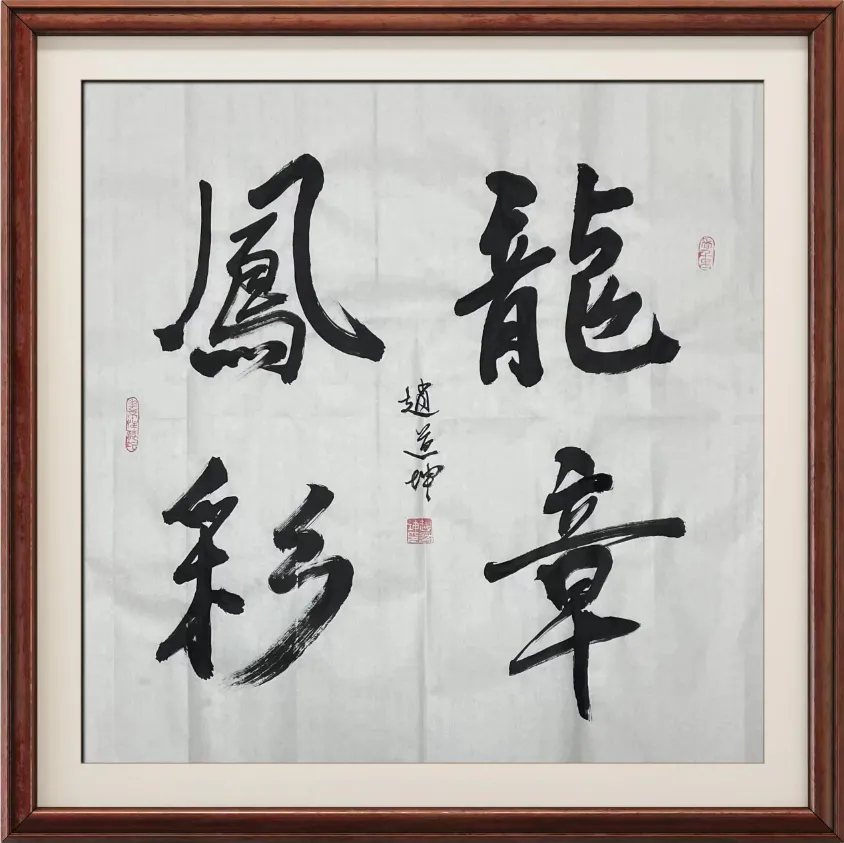 龍章
鳳彩
趙道坤